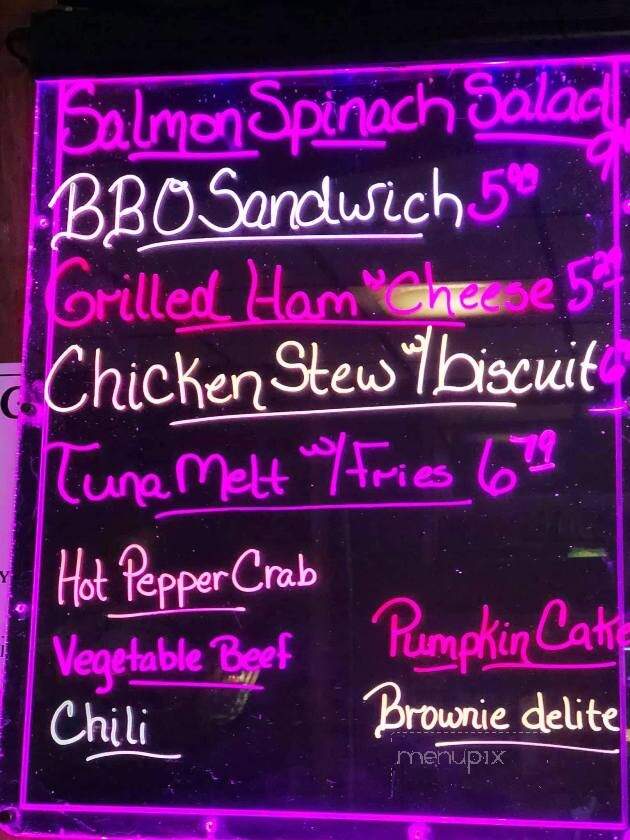 Salmon Spinach Salad
BBQ Sandwich 5.99
Grilled Ham w/ Cheese 5.29
Chicken Stew w/ biscuit
Tuna Melt w/ Fries 6.79
Hot Pepper Crab
Vegetable Beef
Pumpkin Cake
Chili
Brownie delite
menupix